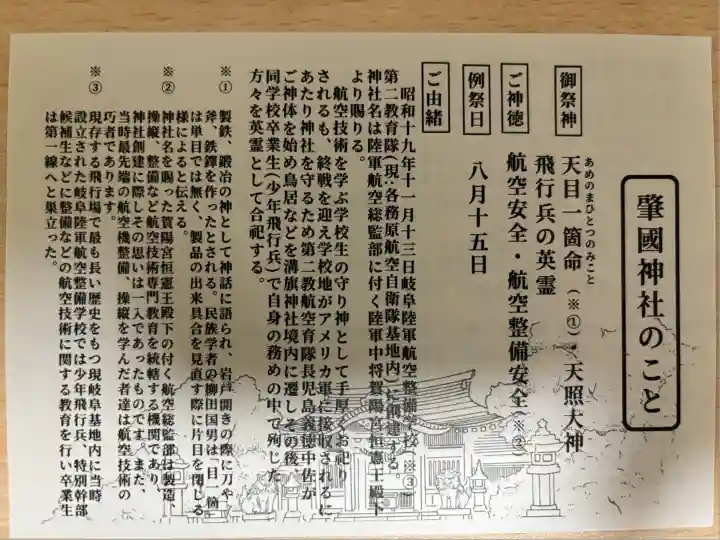 肇國神社のこと
御祭神
あめのまひとつのみこと
天目一箇命（※①）・天照大神
飛行兵の英霊
ご神徳
航空安全・航空整備安全（※②）
例祭日
八月十五日
ご由緒
昭和十九年十一月十三日岐阜陸軍航空整備学校（※③）
第二教育隊（現:各務原航空自衛隊基地内）に創建する。
神社名は陸軍航空総監部に付く陸軍中将賀陽宮恒憲王殿下
より賜りる。
航空技術を学ぶ学校生の守り神として手厚くお祀り
されるも、終戦を迎え学校地がアメリカ軍に接収されるに
あたり神社を守るため第二教航空育隊長児島義徳中佐が
ご神体を始め鳥居などを溝旗神社境内に遷しその後、
同学校卒業生（少年飛行兵）で自身の務めの中で殉じた
方々を英霊として合祀する。
※①　製鉄、鍛冶の神として神話に語られ、岩戸開きの際に刀や、
斧、鉄鐸を作ったとされる。民族学者の柳田国男は「目一箇」
は単目では無く、製品の出来具合を見直す際に片目を閉じる
様によると伝える。
※②　神社名を賜った賀陽宮恒憲王殿下の付く航空総監部は製造、
操縦、整備など航空技術専門教育を統轄する機関であり、
神社創建に際しその思いは一入であったものです。また、
当時最先端の航空機整備、操縦を学んだ者達は航空技術の
巧者であります。
※③　現存する飛行場で最も長い歴史をもつ現岐阜基地内に当時
設立された岐阜陸軍航空整備学校では少年飛行兵、特別幹部
候補生などに整備などの航空技術に関する教育を行い卒業生
は第一線へと巣立った。